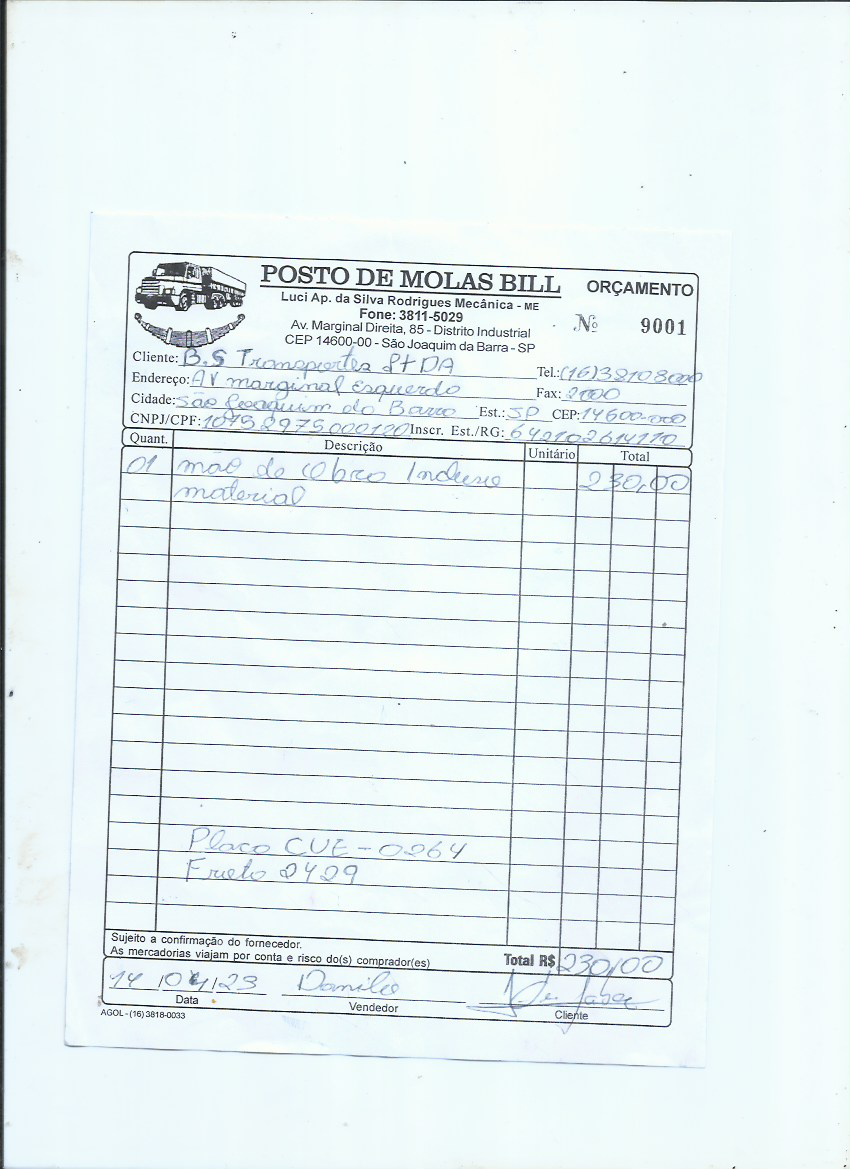 POSTO DE MOLAS BILL
ORÇAMENTO
Luci Ap. da Silva Rodrigues Mecânica - ME
Fone: 3811-5029
Av. Marginal Direita, 85 - Distrito Industrial
CEP 14600-00 - São Joaquim da Barra - SP
Nº 9001
Cliente: B.S Transportes LtDA Tel.: (16)38108000
Endereço: AV marginal Esquerdo Fax: 2700
Cidade: São Joaquim da Barra Est.: SP CEP: 14600-000
CNPJ/CPF: 10752975000120 Inscr. Est./RG: 642102614110
Quant. Descrição Unitário Total
01 mão de Obra Incluso 230,00
material
Placa CUE-0264
Frota 2429
Sujeito a confirmação do fornecedor.
As mercadorias viajam por conta e risco do(s) comprador(es)
Total R$ 230,00
14/04/23 Danilo
Data Vendedor Cliente
AGOL - (16) 3818-0033